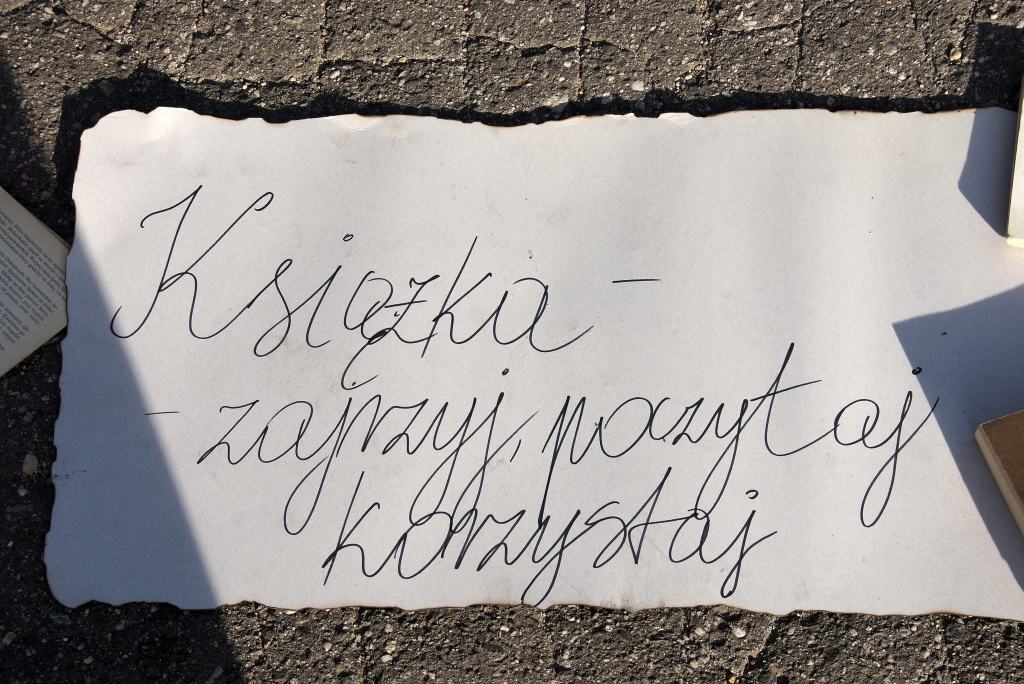 Książka -
- zajrzyj, poczytaj
korzystaj